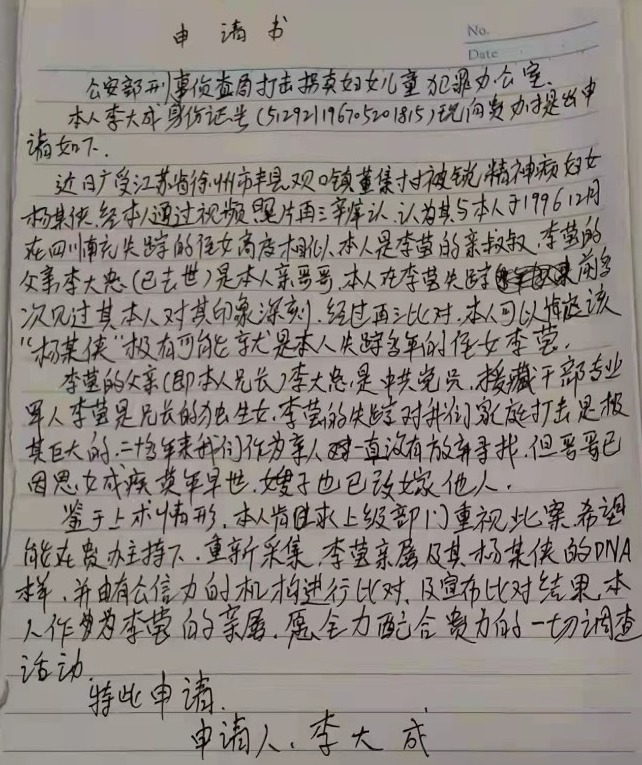 申请书
No.
Date
公安部刑事侦查局打击拐卖妇女儿童犯罪办公室.
本人李大成身份证号(512921196705201815)现向贵办提出申
请如下.
近日广受江苏省徐州市丰县欢口镇董集村被锁精神病妇女
杨某侠.经本人通过视频照片再三辨认.认为其与本人于1996 12月
在四川南充失踪的侄女高度相似.本人是李莹的亲叔叔.李莹的
父亲李大忠(已去世)是本人亲哥哥.本人在李莹失踪前多
次见过其本人对其印象深刻.经过再三比对.本人可以 该
"杨某侠"极有可能 是本人失踪多年的侄女李莹.
李莹的父亲(即本人兄长)李大忠.是中共党员.援藏干部专业
军人李莹是兄长的独生女.李莹的失踪对我们家庭打击是极
其巨大的.二十多年来我们作为亲人 一直没有放弃寻找.但哥哥已
因思女成疾英年早世.嫂子也已改嫁他人.
鉴于上术情形.本人肯求上级部门重视此案.希望
能在贵办主持下.重新采集.李莹亲属及其杨某侠的DNA
样.并由有公信力的机构进行比对.及宣布比对结果.本
人作为李莹的亲属.愿全力配合贵方的一切调查
活动.
特此申请.
申请人.李大成